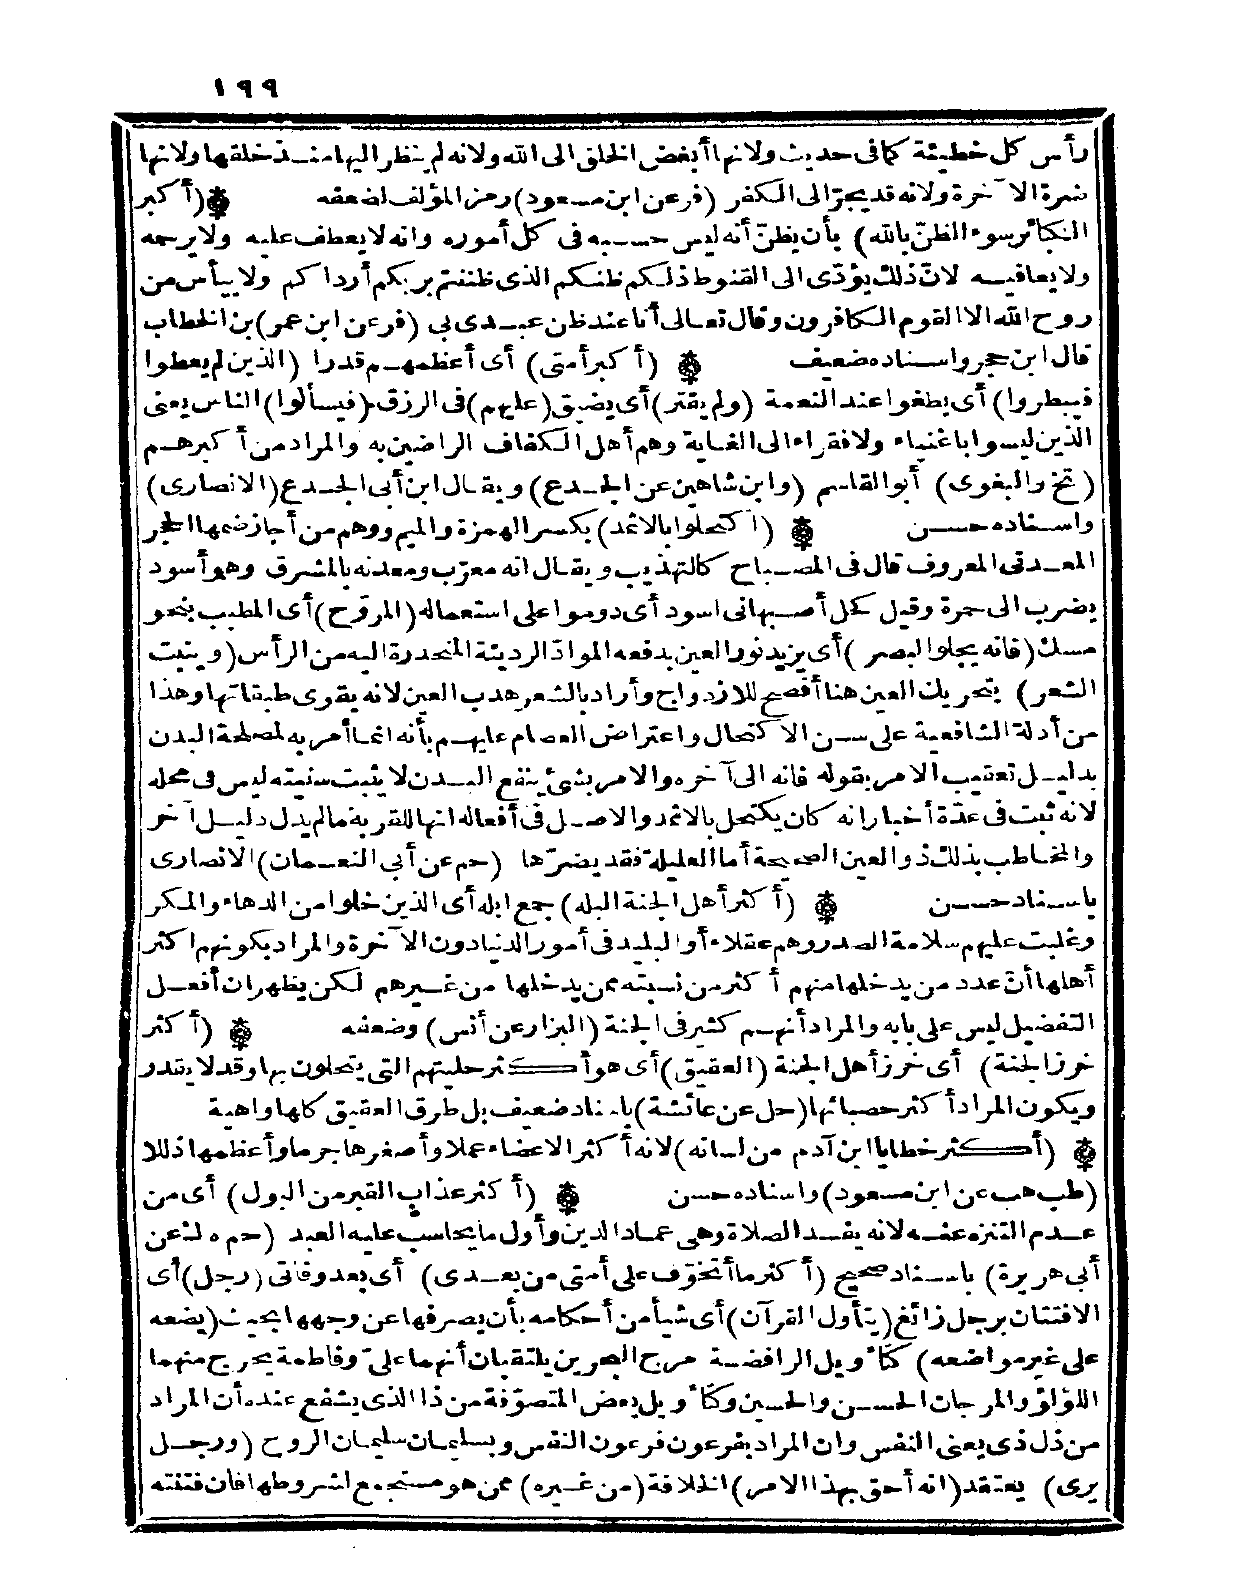 ١٩٩
رأس كل خطيئة كما فى حديث ولانها أبغض الخلق الى الله ولانه لم ينظر اليها منذ خلقها ولانها
ضرة الآخرة ولانه قد يجرّ الى الكفر (فر عن ابن مسعود) رمز المؤلف لضعفه ۞ (أكبر
الكبائر سوء الظنّ بالله) بأن يظنّ أنه ليس حسبه فى كل أموره وانه لا يعطف عليه ولا يرحمه
ولا يعافيه لانّ ذلك يؤدّى الى القنوط ذلكم ظنكم الذى ظننتم بربكم أرداكم ولا ييأس من
روح الله الا القوم الكافرون وقال تعالى أنا عند ظن عبدى بى (فر عن ابن عمر) بن الخطاب
قال ابن حجر واسناده ضعيف ۞ (أكبر أمتى) أى أعظمهم قدرا (الذين لم يعطوا
فيبطروا) أى يطغوا عند النعمة (ولم يقتر) أى يضيق (عليهم) فى الرزق (فيسألوا) الناس يعنى
الذين ليسوا باغنياء ولا فقراء الى الغاية وهم أهل الكفاف الراضين به والمراد من أكبرهم
(تخ والبغوى) أبو القاسم (وابن شاهين عن الجدع) ويقال ابن أبى الجدع (الانصارى)
واسناده حسن ۞ (اكتحلوا بالاثمد) بكسر الهمزة والميم ووهم من أجاز ضمها الحجر
المعدنى المعروف قال فى المصباح كالتهذيب ويقال انه معرّب ومعدنه بالمشرق وهو أسود
يضرب الى حمرة وقيل كحل أصبهانى اسود أى دوموا على استعماله (المروّح) أى المطيب بنحو
مسك (فانه يجلو البصر) أى يزيد نور العين بدفعه الموادّ الرديئة المنحدرة اليه من الرأس (وينبت
الشعر) بتحريك العين هنا أفصح للازدواج وأراد بالشعر هدب العين لانه يقوى طبقاتها وهذا
من أدلة الشافعية على سن الاكتحال واعتراض العصام عليهم بأنه انما أمر به لمصلحة البدن
بدليل تعقيب الامر بقوله فانه الى آخره والامر بشئ ينفع البدن لا يثبت سنيته ليس فى محله
لانه ثبت فى عدّة أخبار انه كان يكتحل بالاثمد والاصل فى أفعاله انها للقربة ما لم يدل دليل آخر
والمخاطب بذلك ذو العين الصحيحة أما العليلة فقد يضرّها (حم عن أبى النعمان) الانصارى
باسناد حسن ۞ (أكثر أهل الجنة البله) جمع ابله أى الذين خلوا من الدهاء والمكر
وغلبت عليهم سلامة الصدر وهم عقلاء أو البليد فى أمور الدنيا دون الآخرة والمراد بكونهم اكثر
أهلها أن عدد من يدخلها منهم أكثر من نسبته ممن يدخلها من غيرهم لكن يظهر ان أفعل
التفضيل ليس على بابه والمراد أنهم كثير فى الجنة (البزار عن أنس) وضعفه ۞ (أكثر
خرز الجنة) أى خرز أهل الجنة (العقيق) أى هو أكثر حليتهم التى يتحلون بها وقد لا يقدر
ويكون المراد أكثر حصبائها (حل عن عائشة) باسناد ضعيف بل طرق العقيق كلها واهية
۞ (أكثر خطايا ابن آدم من لسانه) لانه أكثر الاعضاء عملا وأصغرها جرما وأعظمها ذللا
(طب هب عن ابن مسعود) واسناده حسن ۞ (أكثر عذاب القبر من البول) أى من
عدم التنزه عنه لانه يفسد الصلاة وهى عماد الدين وأول ما يحاسب عليه العبد (حم ه ك عن
أبى هريرة) باسناد صحيح (أكثر ما أتخوّف على أمتى من بعدى) أى بعد وفاتى (رجل) أى
الافتتان برجل زائغ (يتأول القرآن) أى شيأ من أحكامه بأن يصرفها عن وجهها بحيث (يضعه
على غير مواضعه) كتأويل الرافضة مرج البحرين يلتقيان أنهما علىّ وفاطمة يخرج منهما
اللؤلؤ والمرجان الحسن والحسين وكتأويل بعض المتصوّفة من ذا الذى يشفع عنده أن المراد
من ذل ذى يعنى النفس وان المراد بفرعون فرعون النفس وبسليمان سليمان الروح (ورجل
يرى) يعتقد (انه أحق بهذا الامر) الخلافة (من غيره) ممن هو مستجمع لشروطها فان فتنته